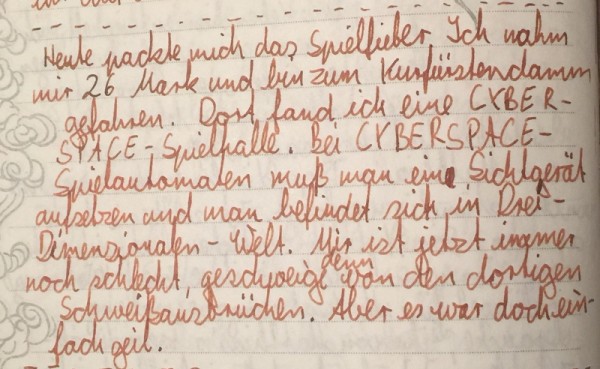 Heute packte mich das Spielfieber. Ich nahm
mir 26 Mark und bin zum Kurfürstendamm
gefahren. Dort fand ich eine CYBER-
SPACE-Spielhalle. Bei CYBERSPACE-
Spielautomaten muß man eine Sichtgerät
aufsetzen und man befindet sich in Drei-
Dimenzionalen-Welt. Mir ist jetzt immer
noch schlecht, geschweige denn von den dortigen
Schweißausbrüchen. Aber es war doch ein-
fach geil.